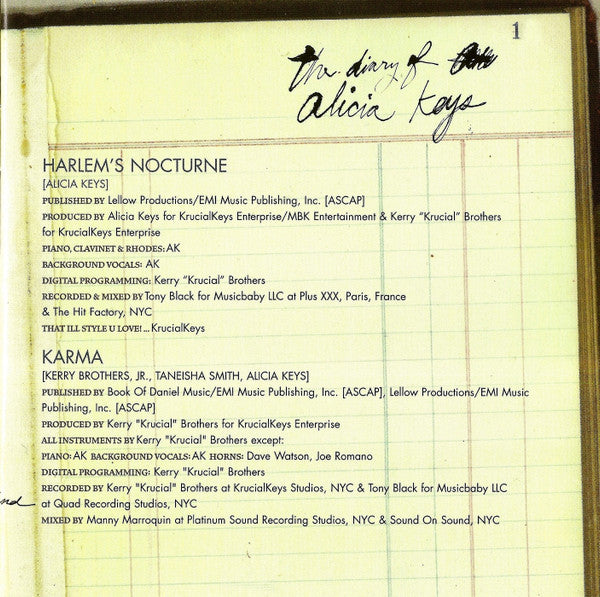 1
the diary of
alicia keys
HARLEM'S NOCTURNE
[ALICIA KEYS]
PUBLISHED BY Lellow Productions/EMI Music Publishing, Inc. [ASCAP]
PRODUCED BY Alicia Keys for KrucialKeys Enterprise/MBK Entertainment & Kerry “Krucial” Brothers
for KrucialKeys Enterprise
PIANO, CLAVINET & RHODES: AK
BACKGROUND VOCALS: AK
DIGITAL PROGRAMMING: Kerry “Krucial” Brothers
RECORDED & MIXED BY Tony Black for Musicbaby LLC at Plus XXX, Paris, France
& The Hit Factory, NYC
THAT ILL STYLE U LOVE!... KrucialKeys
KARMA
[KERRY BROTHERS, JR., TANEISHA SMITH, ALICIA KEYS]
PUBLISHED BY Book Of Daniel Music/EMI Music Publishing, Inc. [ASCAP], Lellow Productions/EMI Music
Publishing, Inc. [ASCAP]
PRODUCED BY Kerry "Krucial" Brothers for KrucialKeys Enterprise
ALL INSTRUMENTS BY Kerry "Krucial" Brothers except:
PIANO: AK BACKGROUND VOCALS: AK HORNS: Dave Watson, Joe Romano
DIGITAL PROGRAMMING: Kerry "Krucial" Brothers
RECORDED BY Kerry "Krucial" Brothers at KrucialKeys Studios, NYC & Tony Black for Musicbaby LLC
at Quad Recording Studios, NYC
MIXED BY Manny Marroquin at Platinum Sound Recording Studios, NYC & Sound On Sound, NYC